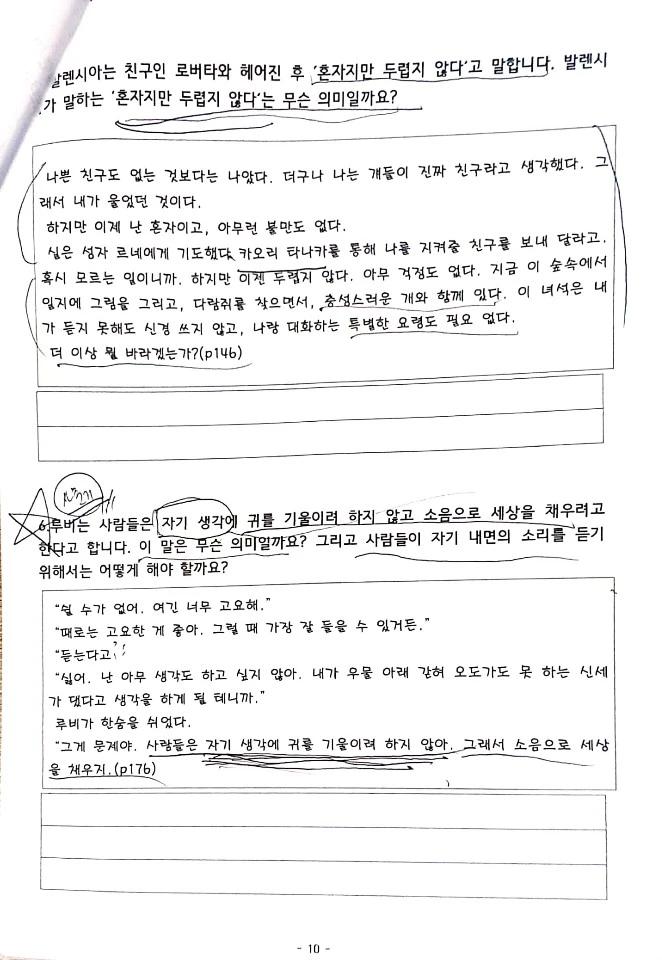 발렌시아는 친구인 로버타와 헤어진 후 '혼자지만 두렵지 않다'고 말합니다. 발렌시
가 말하는 '혼자지만 두렵지 않다'는 무슨 의미일까요?
나쁜 친구도 없는 것보다는 나았다. 더구나 나는 걔들이 진짜 친구라고 생각했다. 그
래서 내가 울었던 것이다.
하지만 이제 난 혼자이고, 아무런 불만도 없다.
실은 성자 르네에게 기도했다. 카오리 타나카를 통해 나를 지켜줄 친구를 보내 달라고.
혹시 모르는 일이니까. 하지만 이젠 두렵지 않다. 아무 걱정도 없다. 지금 이 숲속에서
일지에 그림을 그리고, 다람쥐를 찾으면서, 충성스러운 개와 함께 있다. 이 녀석은 내
가 듣지 못해도 신경 쓰지 않고, 나랑 대화하는 특별한 요령도 필요 없다.
더 이상 뭘 바라겠는가?(p146)
6.루비는 사람들은 자기 생각에 귀를 기울이려 하지 않고 소음으로 세상을 채우려고
한다고 합니다. 이 말은 무슨 의미일까요? 그리고 사람들이 자기 내면의 소리를 듣기
위해서는 어떻게 해야 할까요?
"쉴 수가 없어. 여긴 너무 고요해."
"때로는 고요한 게 좋아. 그럴 때 가장 잘 들을 수 있거든."
"듣는다고?"
"싫어. 난 아무 생각도 하고 싶지 않아. 내가 우물 아래 갇혀 오도가도 못 하는 신세
가 됐다고 생각을 하게 될 테니까."
루비가 한숨을 쉬었다.
"그게 문제야. 사람들은 자기 생각에 귀를 기울이려 하지 않아. 그래서 소음으로 세상
을 채우지.(p176)
- 10 -